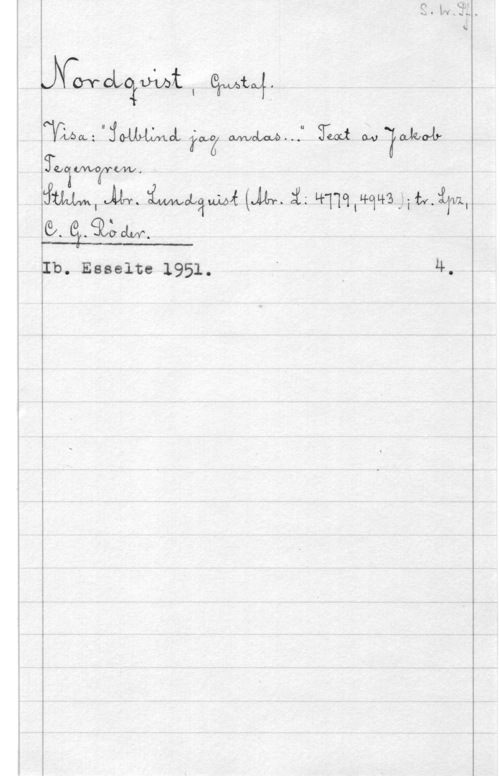 S. W. Pf.
Nordqvist, Gustaf.
Visa: "Solblind jag andas..." Text av Jakob
Tegengren.
Sthlm, Abr. Lundquist (Abr. L: 4779, 4943); tr. Lpz,
C. G. Röder.
Ib. Esselte 1951. 4.